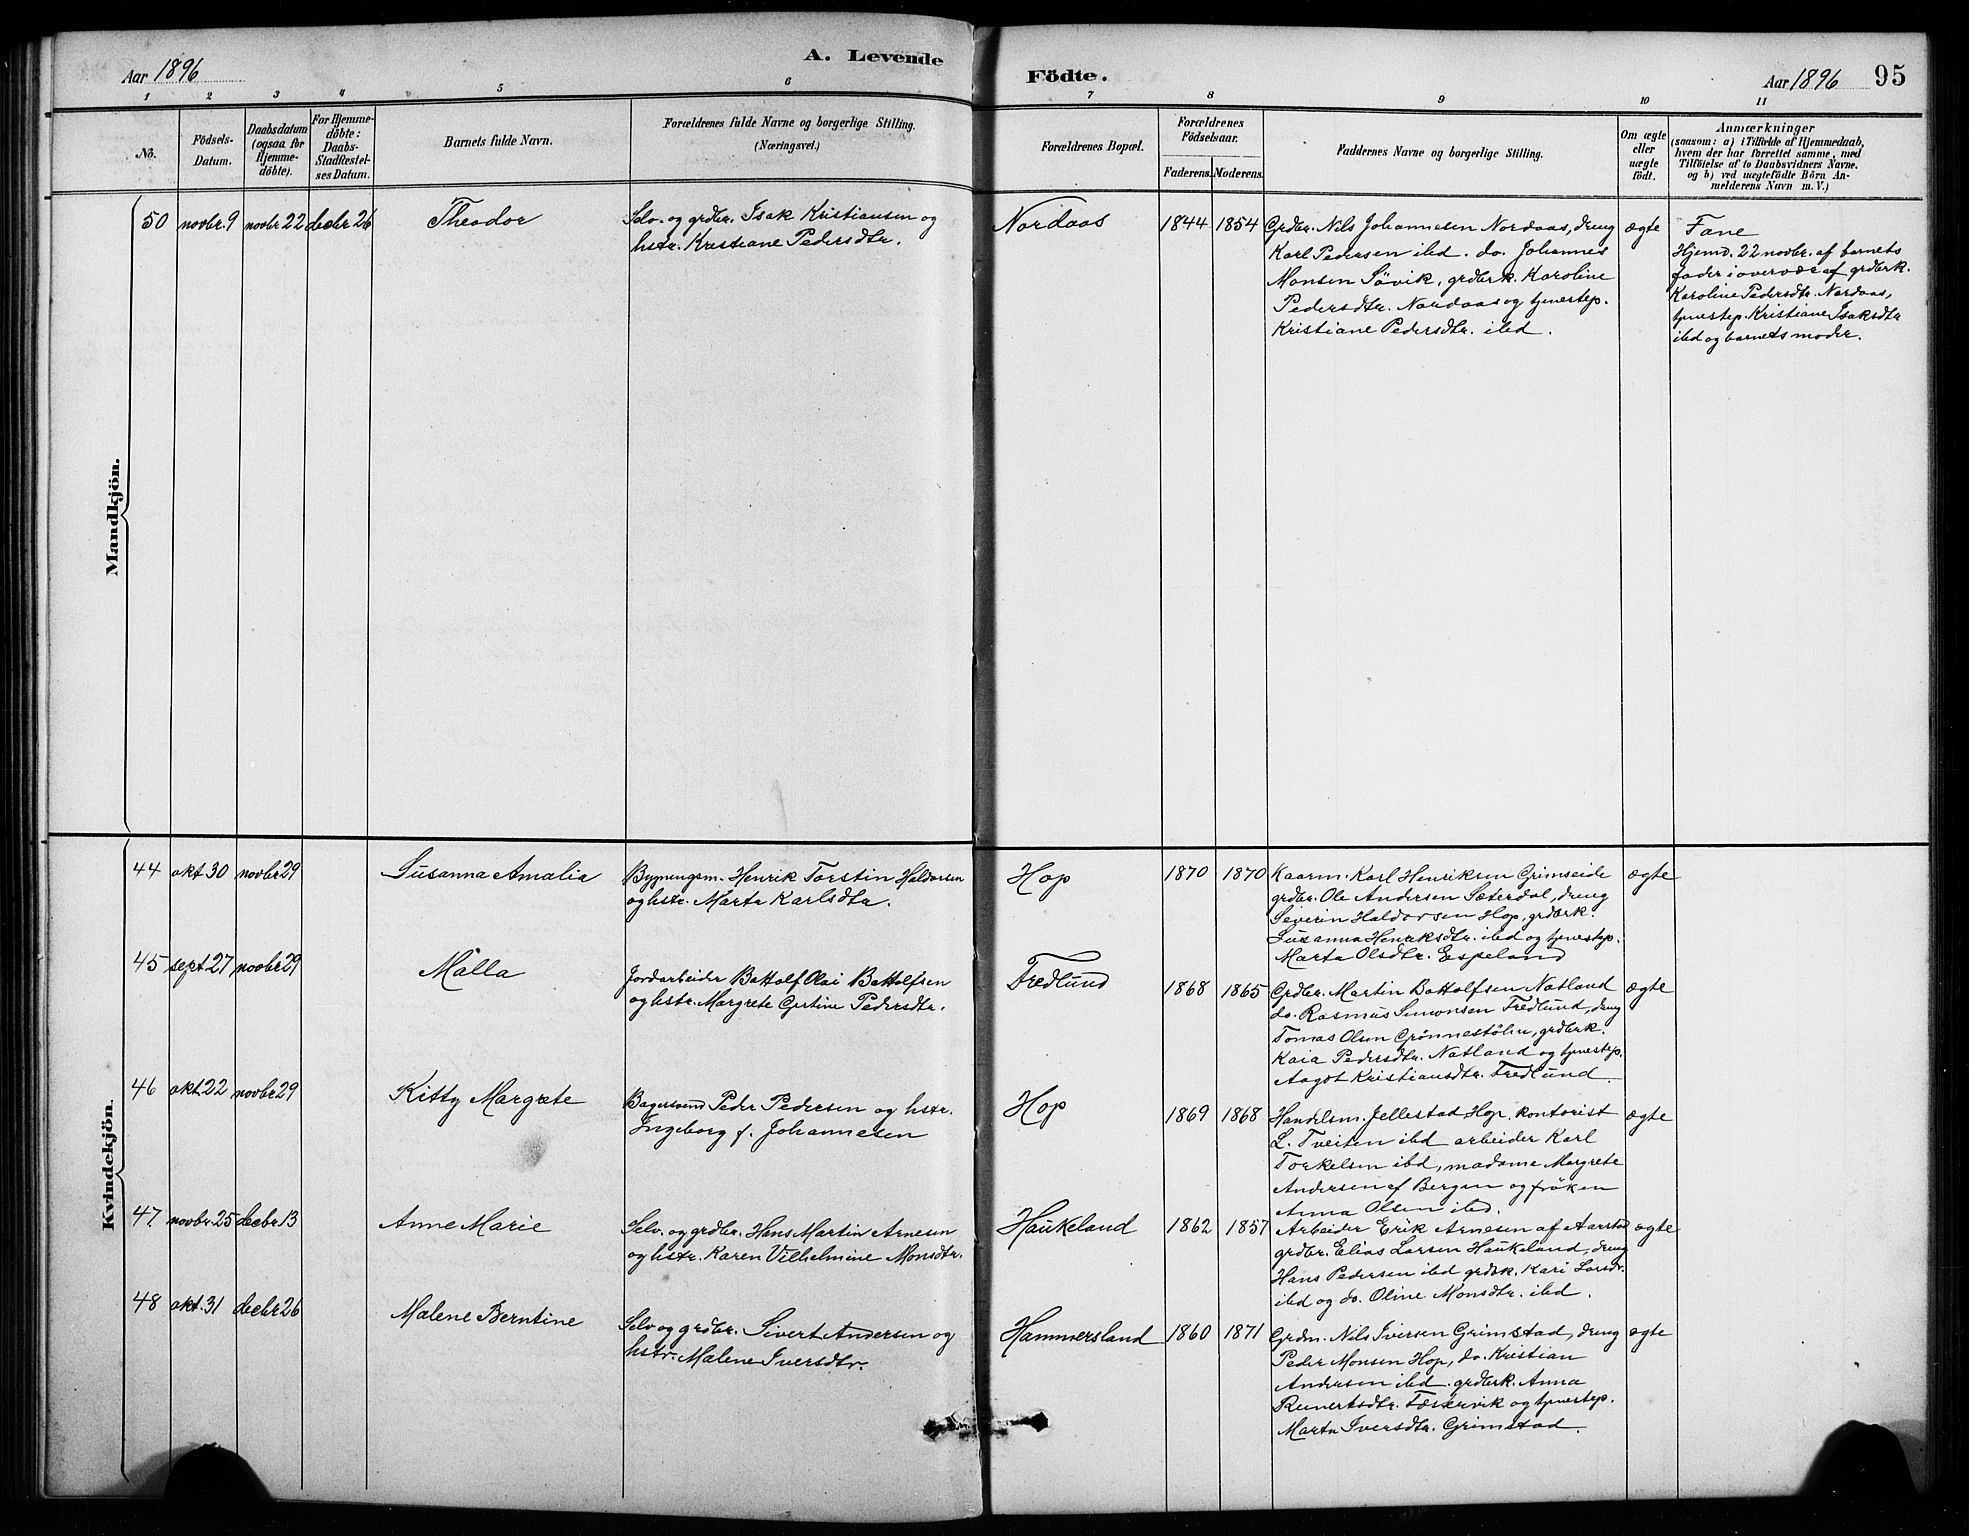 Aar 1896
A. Levende
Födte.
Aar 1896
95
1 2 3 4 5 6 7 8 9 10 11
No.
Födsels-
Datum.
Daabsdatum
(ogsaa for
Hjemme-
döbte).
For Hjemme-
döbte:
Daabs-
Stadfæstel-
ses Datum.
Barnets fulde Navn.
Forældrenes fulde Navne og borgerlige Stilling.
(Næringsvei.)
Forældrenes Bopæl.
Forældrenes
Födselsaar.
Faderens. Moderens.
Faddernes Navne og borgerlige Stilling.
Om ægte
eller
uægte
födt.
Anmærkninger
(saasom: a) i Tilfælde af Hjemmedaab,
hvem der har forrettet samme, med
Tilföielse af to Daabsvidners Navne.
og b) ved uægtefödte Börn An-
melderens Navn m. V.)
Mandkjön.
50
novbr. 9
novbr 22
decbr 26
Theodor
Selv. og grdbr. Isak Kristiansen og
hstr. Kristiane Pedersdtr.
Nordaas
1844
1854
Grdbr. Nils Johannesen Nordaas, dreng
Karl Pedersen ibd. do. Johannes
Monsen Sövik, grdbrk. Karoline
Pedersdtr. Nordaas og tjenestep.
Kristiane Pedersdtr. ibd.
ægte
Fane
Hjemd. 22 novbr. af barnets
fader i overvær af grdbrk.
Karoline Pedersdtr. Nordaas,
tjenstep. Kristiane Isaksdtr
ibd og barnets moder.
Kvindekjön.
44
okt 30
novbr 29
Susanna Amalia
Bygningsm. Henrik Torstin Haldorsen
og hstr. Marta Karlsdtr.
Hop
1870
1870
Kaarm. Karl Henriksen Grimseide
grdbr. Ole Andersen Sæterdal, dreng
Severin Haldorsen Hop, grdbrk.
Susanna Henriksdtr. ibd og tjenestep.
Marta Olsdtr. Espeland
ægte
45
sept 27
novbr 29
Malla
Jordarbeider Battolf Olai Battolfsen
og hstr. Margrete Gjertine Pedersdtr.
Fredlund
1868
1865
Grdbr. Martin Battolfsen Natland
do. Rasmus Simonsen Fredlund, dreng
Tomas Olsen Grönnestölen, grdbrk.
Kaia Pedersdtr. Natland og tjenestep.
Aagot Kristiansdtr. Fredlund
ægte
46
okt 22
novbr 29
Kitty Margrete
Bagersvend Peder Pedersen og hstr.
Ingeborg f. Johannesen
Hop
1869
1868
Handelsm. Jellestad Hop, kontorist
L. Tveiten ibd arbeider Karl
Torkelsen ibd, madame Margrete
Andersen af Bergen og fröken
Anna Olsen ibd.
ægte
47
novbr. 25
decbr 13
Anne Marie
Selv. og grdbr. Hans Martin Arnesen
og hstr. Karen Vilhelmine Monsdtr.
Haukeland
1862
1857
Arbeider Erik Arnesen af Aarstad
grdbr. Elias Larsen Haukeland, dreng
Hans Pedersen ibd grdbrk. Kari Larsdtr.
ibd og do. Oline Monsdtr. ibd.
ægte
48
okt. 31
decbr 26
Malene Berntine
Selv og grdbr. Sivert Andersen og
hstr. Malene Iversdtr.
Hammersland
1860
1871
Grdm. Nils Iversen Grimstad, dreng
Peder Monsen Hop, do. Kristian
Andersen ibd. grdbrk. Anna
Reinertsdtr. og tjenestep.
Marta Iversdtr. Grimstad.
ægte